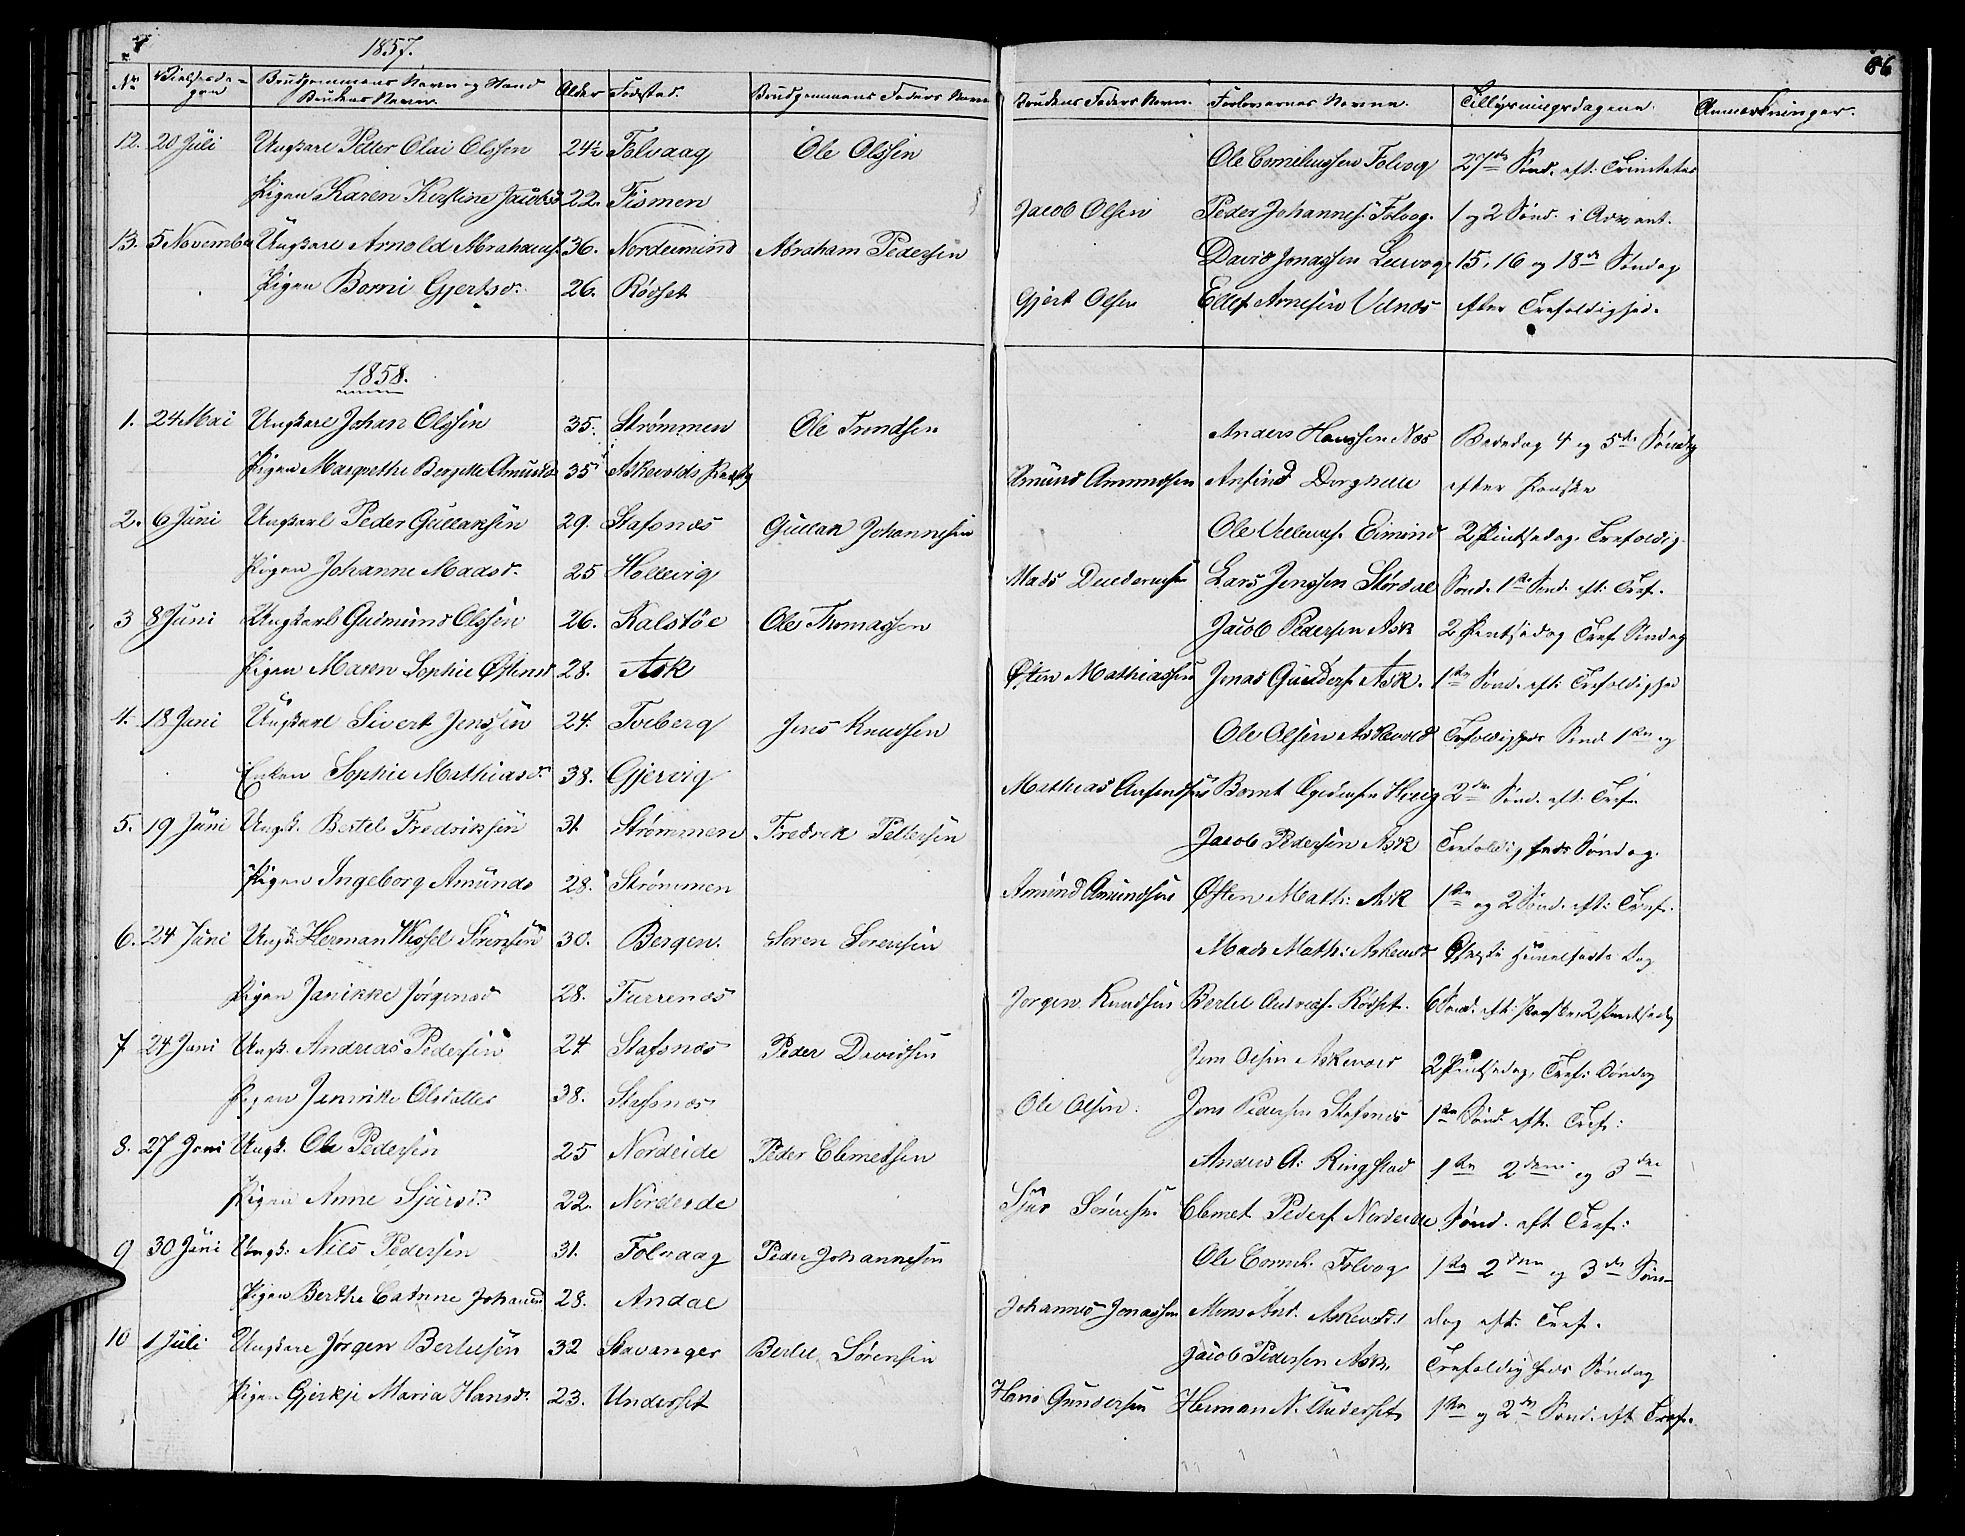 1857.
86
No Vielsesdagen Brudgommens Navn og Stand Brudens Navn. Alder Fødested. Brudgommens Faders Navn Brudens Faders Navn. Forlovernes Navne. Tillysningsdagene. Anmærkninger.
12. 20 Juli Ungkarl Peter Olai Olssen 24½ Folvaag Ole Olssen Ole Corneliussen Folvog 27de Sønd. eft. Trinitatis
Pigen Karen Kirstine Jacobsd 22. Fismen Jacob Olsen Peder Johannes. Folvog. 1 og 2 Sønd. i Advent.
13. 5 November Ungkarl Arnold Abrahams. 36. Nordeimind Abraham Pedersen David Jonassen Leervog 15, 16 og 18de Søndag
Pigen Borni Gjertsd. 26. Rødset Gjert Olsen Ellef Arnesen Vilnæs efter Trefoldighed.
1858.
1. 24 Mai Ungkarl Johan Olssen 35. Strømmen Ole Trondsen Anders Hanssen Næs Bededag 4 og 5te Søndag
Pigen Margrethe Bergitte Amundsd 35 Askevolds Præstg Amund Amundsen Anfind efter Paaske
2. 6 Juni Ungkarl Peder Gullaksen 29. Stafsnæs Gullak Johannesen Ole Villums. Eimind 2 Pintsedag. Trefoldig.
Pigen Johanne Madsd. 25 Hollevig Mads Lars Jenssen Stordal Sønd. 1ste Sønd. eft. Tref.
3 8 Juni Ungkarl Gudmund Olssen 26. Kalstøe Ole Thomassen Jacob Pedersen Ask 2 Pintsedag Tref Søndag
Pigen Maren Sophie Østensd 28. Ask Østen Mathiassen Jonas Gunders. Ask. 1ste Sønd. eft. Trefoldighed
4. 18 Juni Ungkarl Sivert Jenssen 24. Tveberg Jens Knudsen Ole Olsen Askevold Trefoldigheds Sønd 1ste og
Enken Sophie Mathiasd. 38. Gjervig Mathias Bernt 2den Sønd. eft. Tref.
5. 19 Juni Ungk. Bertel Fredriksen 31. Strømmen Fredrik Pettersen Jacob Pedersen Ask Trefoldigheds Søndag.
Pigen Ingeborg Amunds 28. Strømmen Amund Amundsen Østen Math: Ask 1ste og 2 Sønd. eft: Tref.
6. 24 Juni Ungk. Herman Wessel Sørensen 30. Bergen. Søren Sørensen Mads Math: Askevold Christi Himmelfarts Dag
Pigen Janikke Jørgensd 28. Furrenæs Jørgen Knudsen Bertel Andreas. Rødset. 6 Sønd. eft. Paaske, 2 Pintsedag
7. 24 Juni Ungk. Andreas Pedersen 24 Stafsnæs Peder Davidsen Jens Olsen Askevold 2 Pintsedag, Tref: Søndag
Pigen Olsdatter 38. Stafsnæs. Ole Olsen. Jens Pedersen Stafsnæs 1ste Sønd. eft. Tref:
8. 27 Juni Ungk. Ole Pedersen 25 Nordeide Peder Clemetsen Anders A: Ringstad 1ste 2den og 3die
Pigen Anne Sjursd. 22. Nordeide Sjur Sørensen. Clemet Peders. Nordeide Sønd. eft. Tref:
9 30 Juni Ungk. Nils Pedersen 31. Folvaag Peder Johannesen Ole Cornel. Folvog 1ste 2den og 3de Søn-
Pigen Berthe Catrine Johannd 28. Andal Johannes Jonassen Mons And. Askevold. dag eft. Tref.
10 1 Juli Ungkarl Jørgen Bertelsen 32 Stavanger Bertel Sørensen Jacob Pedersen Ask. Trefoldigheds Søndag
Pigen Gjerkje Maria Hansd. 23. Underset Hans Gundersen Herman N. Underset 1ste og 2de Sønd. eft. Tref.